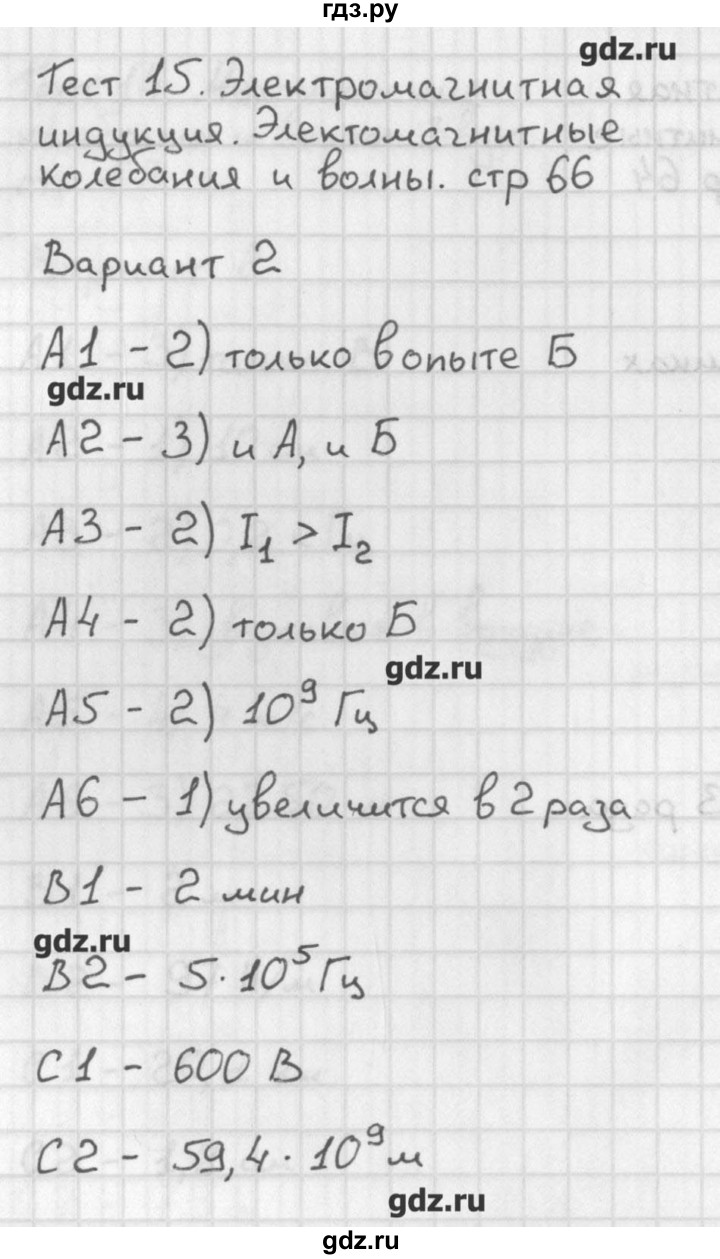 гдз.ру
gdz.ru
Тест 15. Электромагнитная
индукция. Электомагнитные
колебания и волны. стр 66
Вариант 2
А1 - 2) только в опыте Б
gdz.ru
А2 - 3) и А, и Б
А3 - 2) I₁ > I₂
А4 - 2) только Б
gdz.ru
А5 - 2) 10⁹ Гц
А6 - 1) увеличится в 2 раза
В1 - 2 мин
gdz.ru
В2 - 5·10⁵ Гц
С1 - 600 В
С2 - 59,4·10⁹ м
gdz.ru
gdz.ru